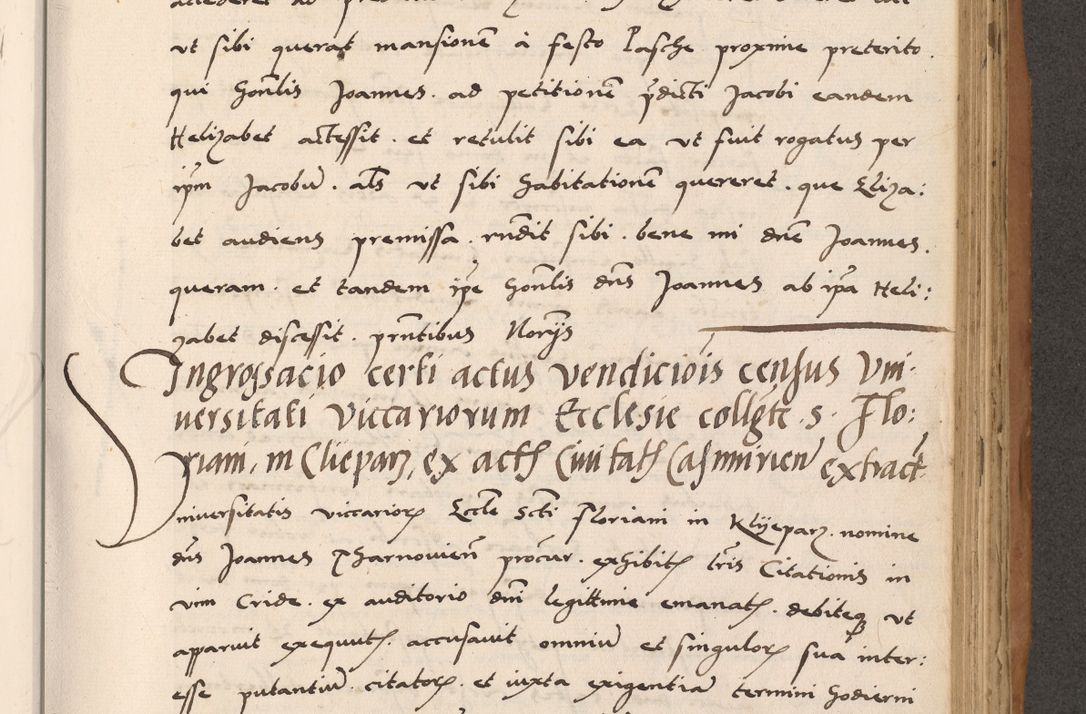 ut sibi querat mansionē à festo Pasche proxime preterito.
qui Honlis Joannes. ad petitionē pdicti Jacobi eandem
Helizabet accessit. et retulit sibi ea ut fuit rogatus per
ipm Jacobū. als ut sibi habitationē quereret. que Eliza:
bet audiens premissa. rndit sibi. bene mi dne Joannes.
queram. et tandem ipe Honlis dns Joannes ab ipa Heli:
zabet discessit. prntibus Norijs
Ingrossacio certi actus vendiciois census Vni-
versitati Viccariorum Ecclesie collgte s. Flo:
riani, in Clieparz, ex actis Civitatis Casmirien extract.
Vniversitatis viccariorz Eccle Scti Floriani in Klijeparz. nomine
dns Joannes Tharnovien procur. exhibitis lris Citationis in
vim Cride. ex auditorio dni legittime emanatis. debiteqz ut
apparuit exequutis. accusavit omniū et singulorz sua inter:
esse putantiū citatorz. et iuxta exigentiā termini hodierni